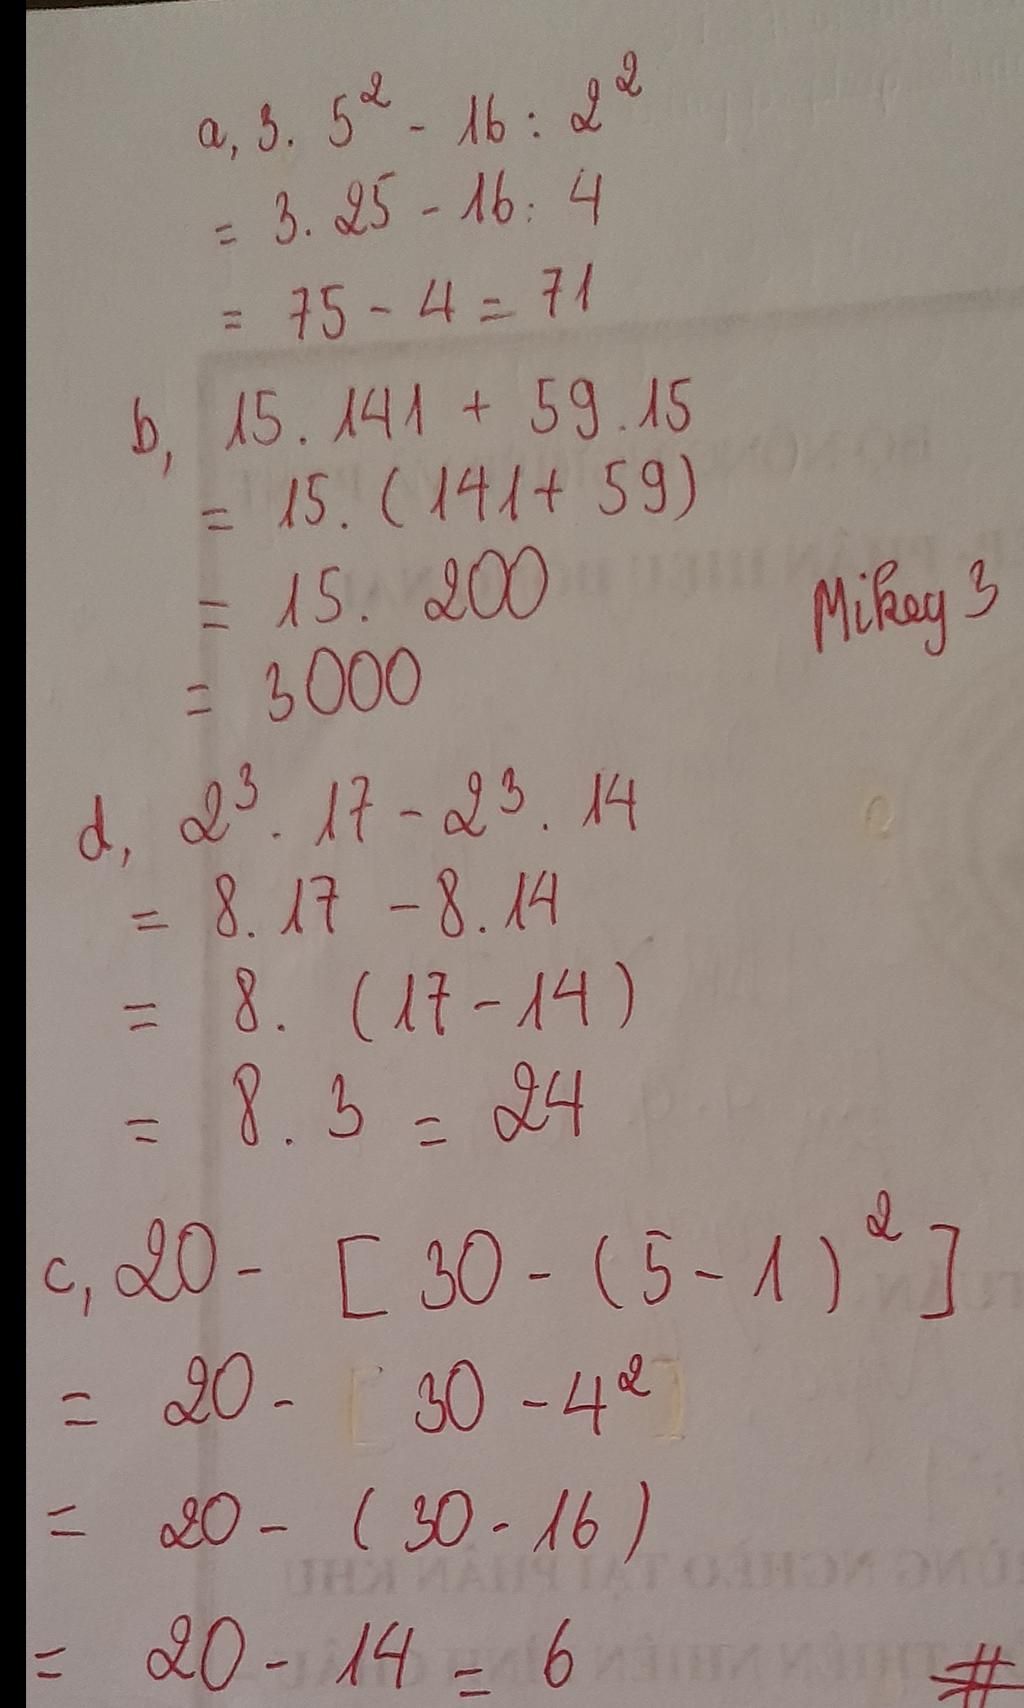 a, 3. 5² - 16 : 2²
= 3. 25 - 16 : 4
= 75 - 4 = 71
b, 15. 141 + 59. 15
= 15. (141 + 59)
= 15. 200
Mikey 3
= 3000
d, 2³. 17 - 2³. 14
= 8. 17 - 8. 14
= 8. (17 - 14)
= 8. 3 = 24
c, 20 - [30 - (5 - 1)²]
= 20 - [30 - 4²]
= 20 - (30 - 16)
= 20 - 14 = 6 #